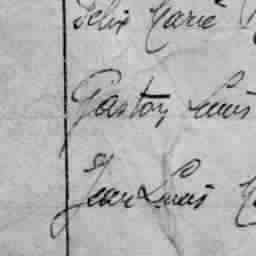 Felix Marie
Gaston Louis
Jean Louis